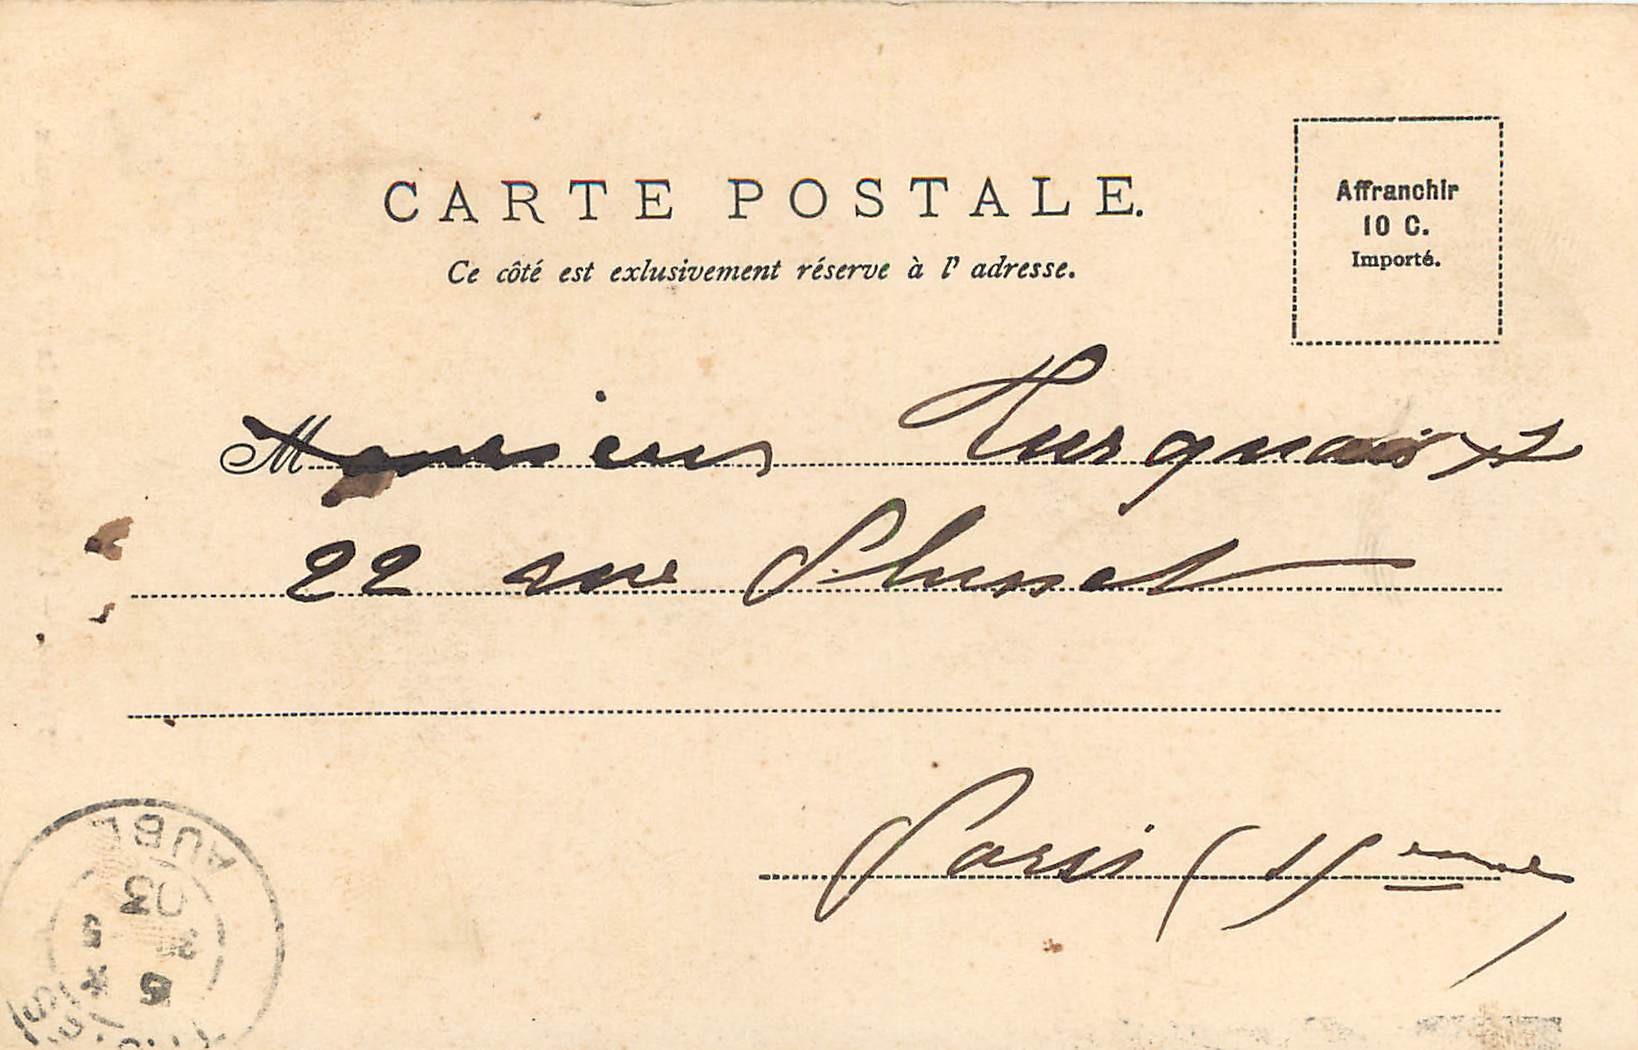 CARTE POSTALE.
Ce côté est exlusivement réserve à l' adresse.
Affranchir
10 C.
Importé.
Monsieur
22 rue Plumet
Paris (15eme)
AUBE
03
5
6